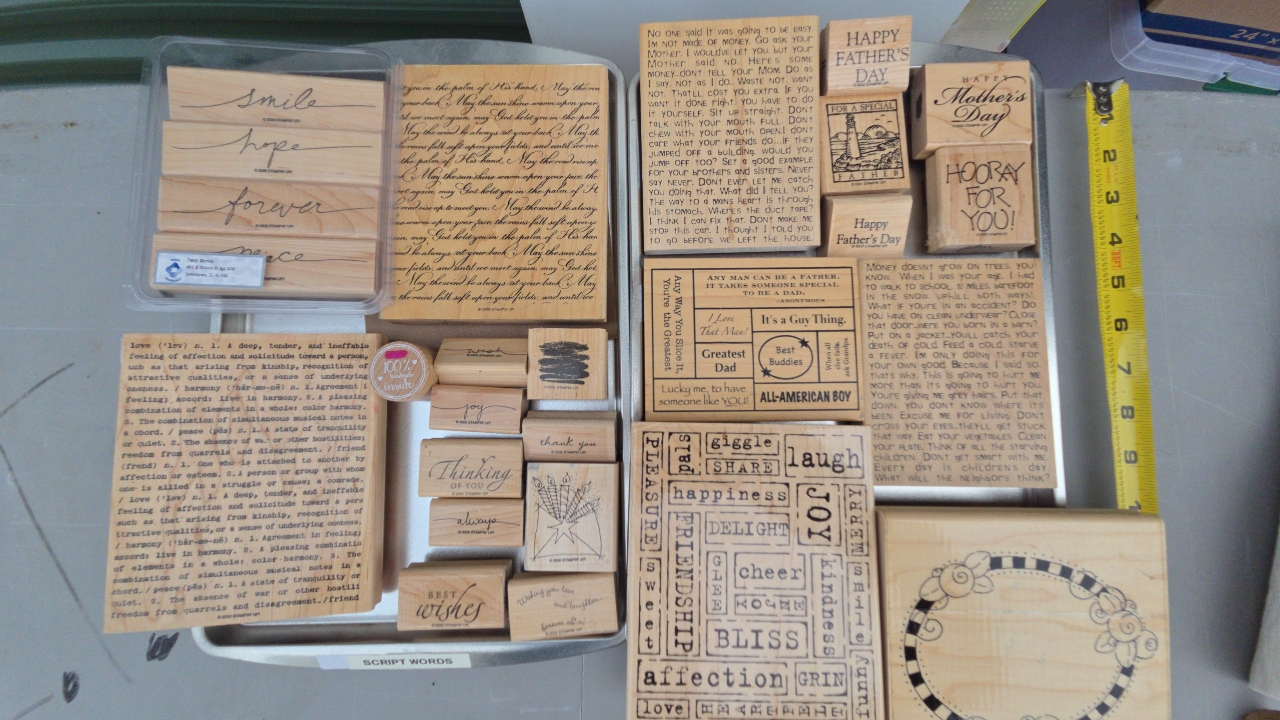 smile
hope
forever
peace
you in the palm of His hand. May the
your back. May the sun shine warm upon your
until we meet again, may God hold you in the palm
May the wind be always at your back. May th
fields and until we meet again, may God hold
the palm of His hand. May the road rise up
May the sun shine warm upon your face, the
may God hold you in the palm of
road rise up to meet you. May the wind be always
the rains fall soft upon y
may God hold you in the palm of His han
fields, and until we meet again, may God hol
your back. May the sun shine warm upon your
love ('lev) n. 1. A deep, tender, and ineffable
feeling of affection and solicitude toward a person,
such as that arising from kinship, recognition of
attractive qualities, or a sense of underlying
oneness. / harmony ('här-me-nē) n. 1. Agreement i
feeling; accord: live in harmony. 2. A pleasing
combination of elements in a whole: color harmony.
3. The combination of simultaneous musical notes in
a chord. / peace (pēs) n. 1. A state of tranquility
or quiet. 2. The absence of war or other hostilities;
freedom from quarrels and disagreement. / friend
(frend) n. 1. One who is attached to another by
affection or esteem. 2. A person or group with whom
one is allied in a struggle or cause; a comrade.
/ love ('lev) n. 1. A deep, tender, and ineffable
feeling of affection and solicitude toward a pers
such as that arising from kinship, recognition of
ttractive qualities, or a sense of underlying oneness.
/ harmony ('här-me-nē) n. 1. Agreement in feeling;
accord: live in harmony. 2. A pleasing combinatio
of elements in a whole: color harmony. 3. The
combination of simultaneous musical notes in a
chord. / peace (pēs) n. 1. A state of tranquility or
quiet. 2. The absence of war or other hostili
freedom from quarrels and disagreement. /friend
100%
wish
joy
thank you
Thinking
OF YOU
always
BEST
wishes
Wishing you love
and laughter
forever after!
SCRIPT WORDS
No one said it was going to be easy.
I'm not made of money. Go ask your
Mother. I would've let you but your
Mother said no. Here's some
money...don't tell your Mom. Do as
I say, not as I do. Waste not, want
not. That'll cost you extra. If you
want it done right, you have to do
it yourself. Sit up straight. Don't
talk with your mouth full. Don't
chew with your mouth open. I don't
care what your friends do...if they
jumped off a building, would you
jump off too? Set a good example
for your brothers and sisters. Never
say never. Don't ever let me catch
you doing that. What did I tell you?
The way to a man's heart is through
his stomach. Where's the duct tape?
I think I can fix that. Don't make me
stop this car. I thought I told you
to go before we left the house.
HAPPY
FATHER'S
DAY
FOR A SPECIAL
FATHER
Happy
Father's Day
HAPPY
Mother's
Day
HOORAY
FOR
YOU!
Any Way You Slice It,
You're the Greatest
ANY MAN CAN BE A FATHER.
IT TAKES SOMEONE SPECIAL
TO BE A DAD.
-ANONYMOUS
I Love
That Man!
It's a Guy Thing.
Greatest
Dad
Best
Buddies
When all
else fails,
ask Grandpa
Lucky me, to have
someone like YOU!
ALL-AMERICAN BOY
Money doesn't grow on trees, you
know. When I was your age, I had
to walk to school 12 miles barefoot
in the snow, uphill both ways!
What if you're in an accident? Do
you have on clean underwear? Close
that door...were you born in a barn?
Put on a jacket...you'll catch your
death of cold. Feed a cold, starve
a fever. I'm only doing this for
your own good. Because I said so,
that's why. This is going to hurt me
more than it's going to hurt you.
You're giving me grey hairs. Put that
down, you don't know where it's
been. Excuse me for living. Don't
cross your eyes...they'll get stuck
that way. Eat your vegetables. Clean
your plate. Think of all the starving
children. Don't get smart with me.
Every day is children's day.
What will the neighbors think?
PLEASURE
glad
giggle
SHARE
laugh
happiness
JOY
MERRY
FRIENDSHIP
DELIGHT
GLEE
cheer
kindness
smile
sweet
ENJOY
BLISS
affection
GRIN
funny
love
HEARTFELT
1
2
3
4
5
6
7
8
9
24"